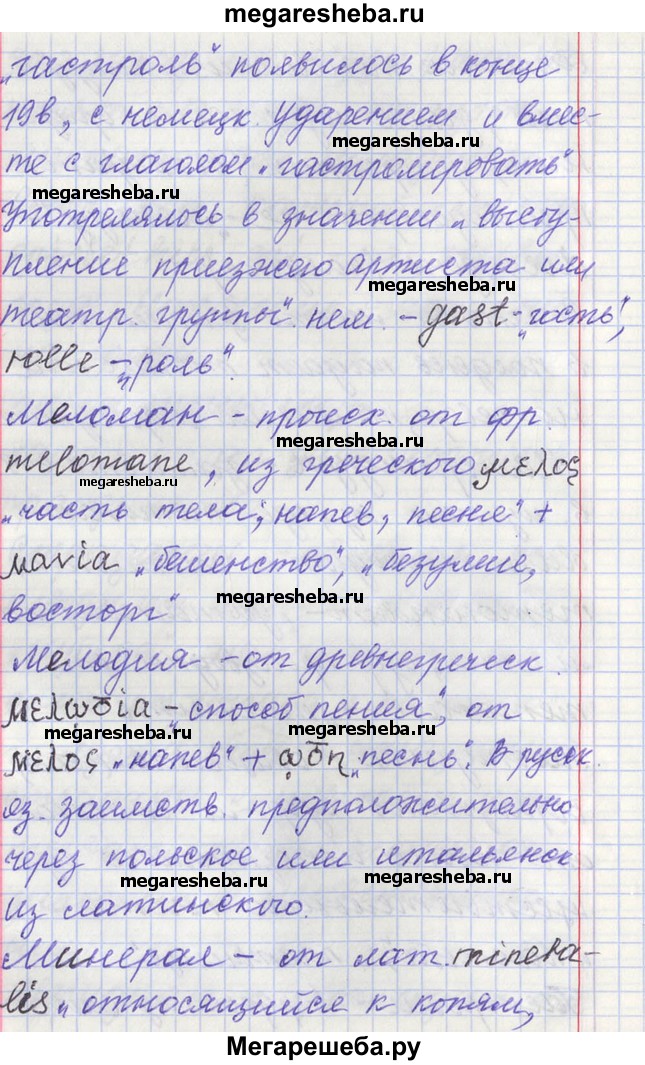 megaresheba.ru
„гастроль" появилось в конце
19в, с немецк. ударением и вмес-
megaresheba.ru
те с глаголом „гастролировать"
megaresheba.ru
Употрелялось в значении „высту-
пление приезжего артиста или
megaresheba.ru
театр. группы". нем. - gast - „гость",
rolle - „роль".
Меломан - происх. от фр.
megaresheba.ru
melomane, из греческого μελος
megaresheba.ru
„часть тела; напев, песня" +
μανία „бешенство", „безумие,
megaresheba.ru
восторг"
Мелодия - от древнегреческ.
μελῳδία - „способ пения", от
megaresheba.ru
megaresheba.ru
μελος „напев" + ῳδη „песнь". В русск.
яз. заимств. предположительно
через польское или итальянск
megaresheba.ru
megaresheba.ru
из латинского.
Минерал - от лат. minera-
lis „относящийся к копям,
Мегарешеба.ру